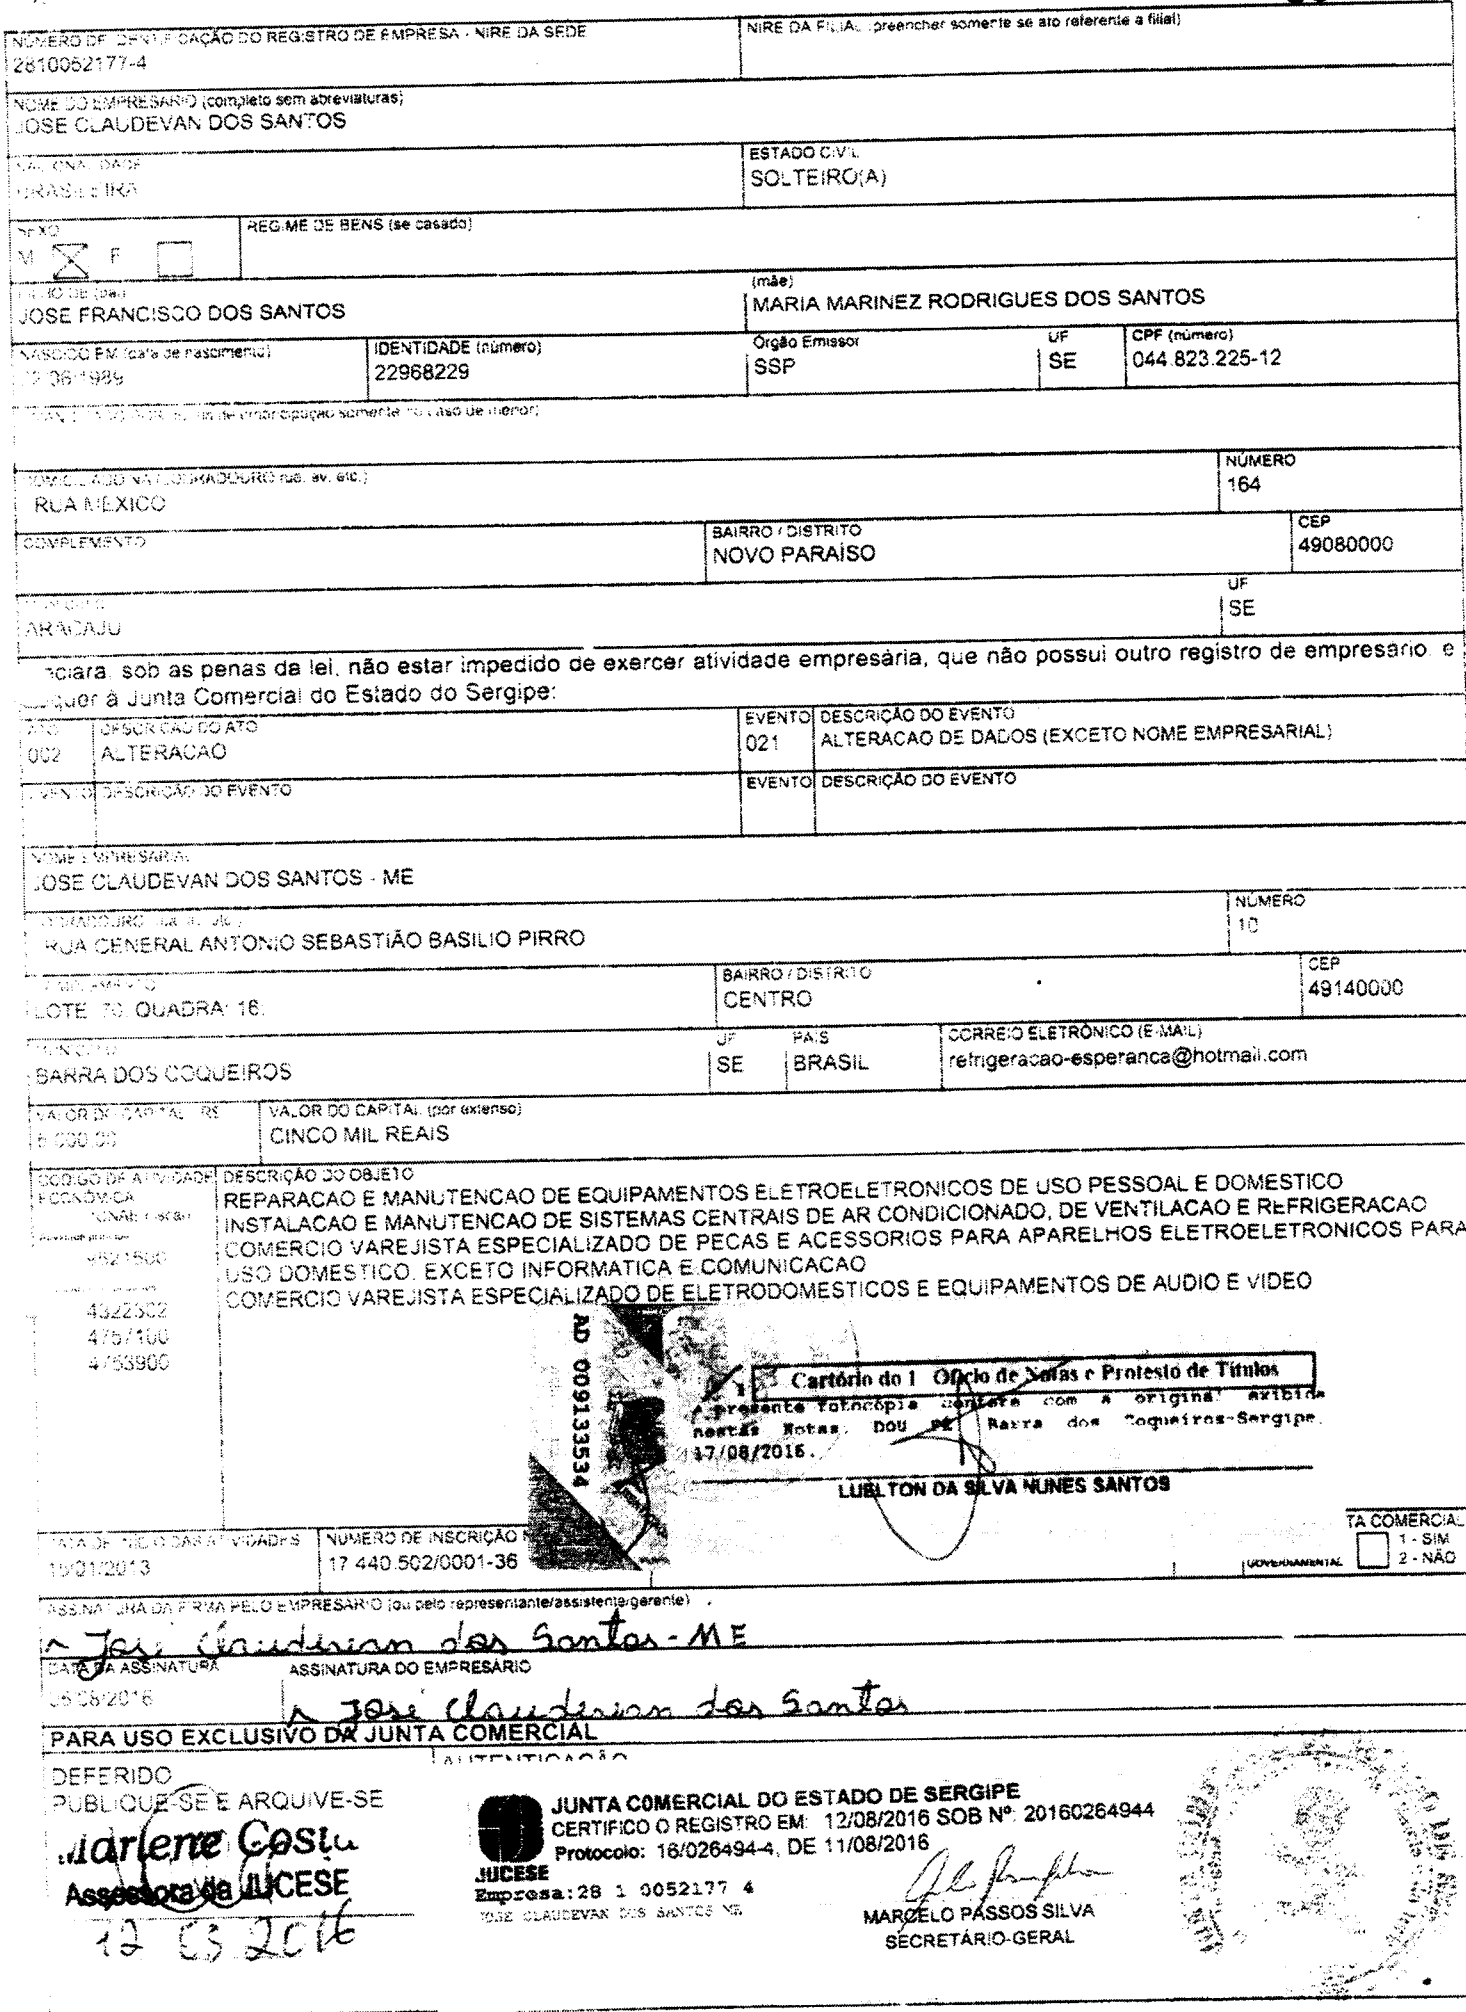 NÚMERO DE IDENTIFICAÇÃO DO REGISTRO DE EMPRESA - NIRE DA SEDE
NIRE DA FILIAL (preencher somente se ato referente a filial)
2810052177-4
NOME DO EMPRESÁRIO (completo sem abreviaturas)
JOSE CLAUDEVAN DOS SANTOS
NACIONALIDADE
ESTADO CIVIL
BRASILEIRA
SOLTEIRO(A)
SEXO
REGIME DE BENS (se casado)
M F
FILHO DE (pai)
(mãe)
JOSE FRANCISCO DOS SANTOS
MARIA MARINEZ RODRIGUES DOS SANTOS
NASCIDO EM (data de nascimento)
IDENTIDADE (número)
Órgão Emissor
UF
CPF (número)
06/1989
22968229
SSP
SE
044.823.225-12
de emancipação somente no caso de menor)
DOMICILIADO NA (LOGRADOURO rua, av, etc.)
NÚMERO
RUA MEXICO
164
COMPLEMENTO
BAIRRO / DISTRITO
CEP
NOVO PARAÍSO
49080000
MUNICÍPIO
UF
ARACAJU
SE
declara, sob as penas da lei, não estar impedido de exercer atividade empresária, que não possui outro registro de empresário, e
requer à Junta Comercial do Estado do Sergipe:
ATO
DESCRIÇÃO DO ATO
EVENTO
DESCRIÇÃO DO EVENTO
002
ALTERACAO
021
ALTERACAO DE DADOS (EXCETO NOME EMPRESARIAL)
EVENTO
DESCRIÇÃO DO EVENTO
EVENTO
DESCRIÇÃO DO EVENTO
NOME EMPRESARIAL
JOSE CLAUDEVAN DOS SANTOS - ME
LOGRADOURO (rua, av, etc.)
NÚMERO
RUA GENERAL ANTONIO SEBASTIÃO BASILIO PIRRO
10
COMPLEMENTO
BAIRRO / DISTRITO
CEP
LOTE: 70, QUADRA: 16,
CENTRO
49140000
MUNICÍPIO
UF
PAÍS
CORREIO ELETRÔNICO (E-MAIL)
BARRA DOS COQUEIROS
SE
BRASIL
refrigeracao-esperanca@hotmail.com
VALOR DO CAPITAL - R$
VALOR DO CAPITAL (por extenso)
5.000,00
CINCO MIL REAIS
CÓDIGO DE ATIVIDADE
ECONÔMICA
(CNAE Fiscal)
DESCRIÇÃO DO OBJETO
REPARACAO E MANUTENCAO DE EQUIPAMENTOS ELETROELETRONICOS DE USO PESSOAL E DOMESTICO
INSTALACAO E MANUTENCAO DE SISTEMAS CENTRAIS DE AR CONDICIONADO, DE VENTILACAO E REFRIGERACAO
COMERCIO VAREJISTA ESPECIALIZADO DE PECAS E ACESSORIOS PARA APARELHOS ELETROELETRONICOS PARA
USO DOMESTICO, EXCETO INFORMATICA E COMUNICACAO
COMERCIO VAREJISTA ESPECIALIZADO DE ELETRODOMESTICOS E EQUIPAMENTOS DE AUDIO E VIDEO
9521500
4322302
4757100
4753900
AD 009133534
Cartório do 1 Ofício de Notas e Protesto de Títulos
A presente fotocópia confere com a original exibida
nestas Notas. DOU FÉ Barra dos Coqueiros-Sergipe.
17/08/2016.
LUELTON DA SILVA NUNES SANTOS
DATA DE INÍCIO DAS ATIVIDADES
NÚMERO DE INSCRIÇÃO
TA COMERCIAL
15/01/2013
17.440.502/0001-36
GOVERNAMENTAL
1 - SIM
2 - NÃO
ASSINATURA DA FIRMA PELO EMPRESÁRIO (ou pelo representante/assistente/gerente)
José Claudevan dos Santos - ME
DATA DA ASSINATURA
ASSINATURA DO EMPRESÁRIO
08/2016
José Claudevan dos Santos
PARA USO EXCLUSIVO DA JUNTA COMERCIAL
AUTENTICAÇÃO
DEFERIDO
PUBLIQUE-SE E ARQUIVE-SE
Marlene Costa
Assessora da JUCESE
JUCESE
JUNTA COMERCIAL DO ESTADO DE SERGIPE
CERTIFICO O REGISTRO EM: 12/08/2016 SOB Nº: 20160264944
Protocolo: 16/026494-4, DE 11/08/2016
Empresa:28 1 0052177 4
JOSE CLAUDEVAN DOS SANTOS ME
MARCELO PASSOS SILVA
SECRETÁRIO-GERAL